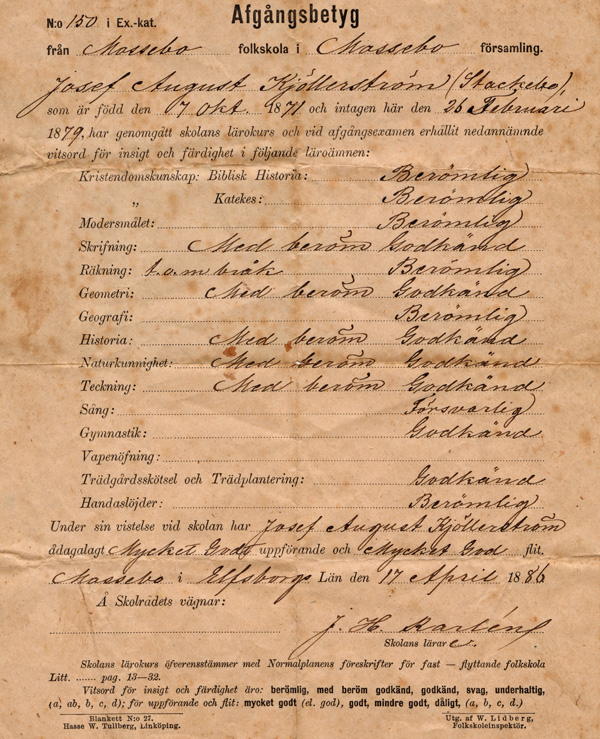 Afgångsbetyg
N:o 150 i Ex.-kat.
från Mossebo folkskola i Mossebo församling.
Josef August Kjöllerström (Stackebo),
som är född den 17 Okt. 1871 och intagen här den 26 Februari
1879, har genomgått skolans lärokurs och vid afgångsexamen erhållit nedannämnde
vitsord för insigt och färdighet i följande läroämnen:
Kristendomskunskap: Biblisk Historia: Berömlig
„ Katekes: Berömlig
Modersmålet: Berömlig
Skrifning: Med beröm Godkänd
Räkning: t.o.m bråk Berömlig
Geometri: Med beröm Godkänd
Geografi: Berömlig
Historia: Med beröm Godkänd
Naturkunnighet: Med beröm Godkänd
Teckning: Med beröm Godkänd
Sång: Försvarlig
Gymnastik: Godkänd
Vapenöfning:
Trädgårdsskötsel och Trädplantering: Godkänd
Handaslöjder: Berömlig
Under sin vistelse vid skolan har Josef August Kjöllerström
ådagalagt Mycket Godt uppförande och Mycket God flit.
Mossebo i Elfsborgs Län den 17 April 1886
Å Skolrådets vägnar:
J. H. Karlén
Skolans lärare.
Skolans lärokurs öfverensstämmer med Normalplanens föreskrifter för fast — flyttande folkskola
Litt. ....... pag. 13—32.
Vitsord för insigt och färdighet äro: berömlig, med beröm godkänd, godkänd, svag, underhaltig,
(a, ab, b, c, d); för uppförande och flit: mycket godt (el. god), godt, mindre godt, dåligt, (a, b, c, d.)
Blankett N:o 27.
Hasse W. Tullberg, Linköping.
Utg. af W. Lidberg,
Folkskoleinspektör.